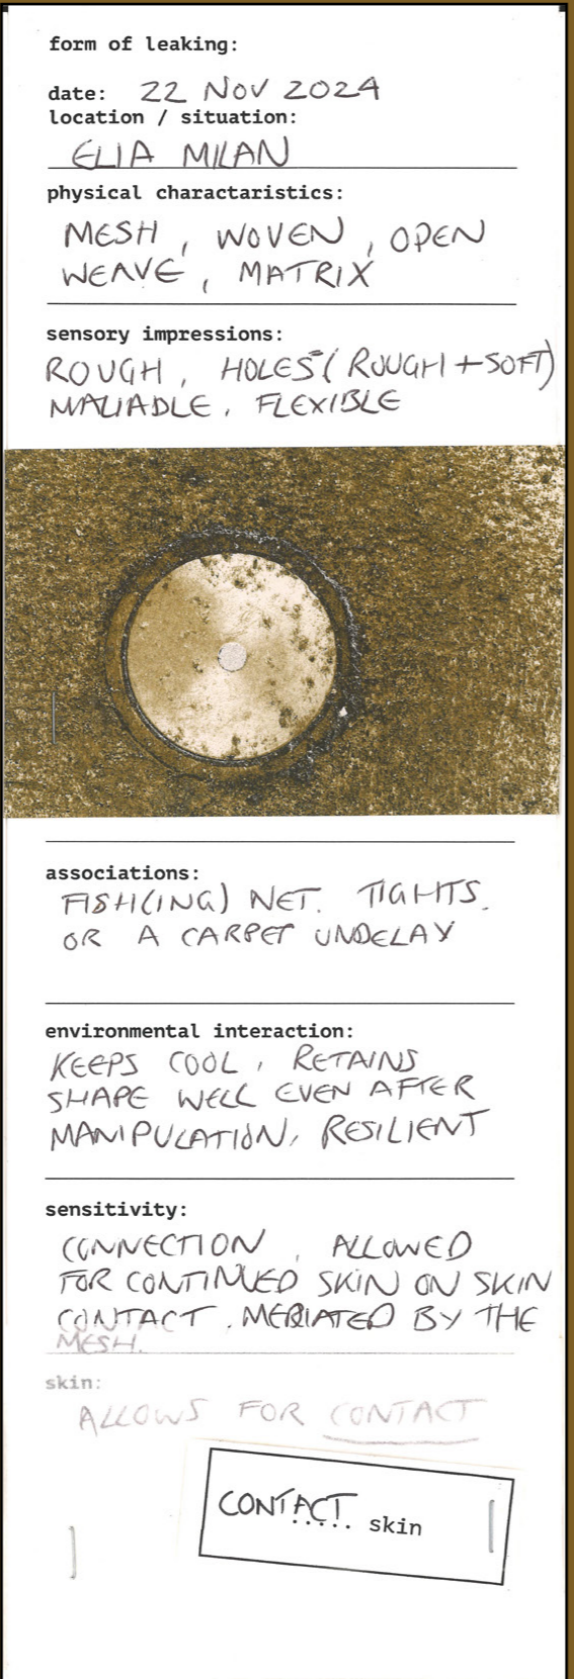 form of leaking:
date: 22 NOV 2024
location / situation:
ELIA MILAN
physical charactaristics:
MESH, WOVEN, OPEN
WEAVE, MATRIX
sensory impressions:
ROUGH, HOLES (ROUGH + SOFT)
MALIADLE, FLEXIBLE
associations:
FISH(ING) NET. TIGHTS.
OR A CARPET UNDELAY
environmental interaction:
KEEPS COOL, RETAINS
SHAPE WELL EVEN AFTER
MANIPULATION, RESILIENT
sensitivity:
CONNECTION, ALLOWED
FOR CONTINUED SKIN ON SKIN
CONTACT. MEDIATED BY THE
MESH.
skin:
ALLOWS FOR CONTACT
CONTACT..... skin